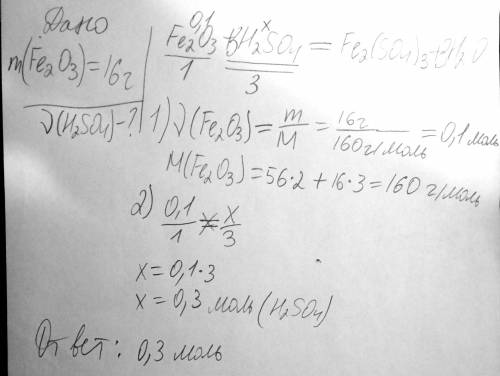 Дано
m(Fe2O3)=16г
ν(H2SO4)-?
0,1 x
Fe2O3+3H2SO4=Fe2(SO4)3+3H2O
1 3
1) ν(Fe2O3)=m/M=16г/160г/моль=0,1 моль
M(Fe2O3)=56·2+16·3=160 г/моль
2) 0,1/1 = x/3
x=0,1·3
x=0,3 моль (H2SO4)
Ответ: 0,3 моль